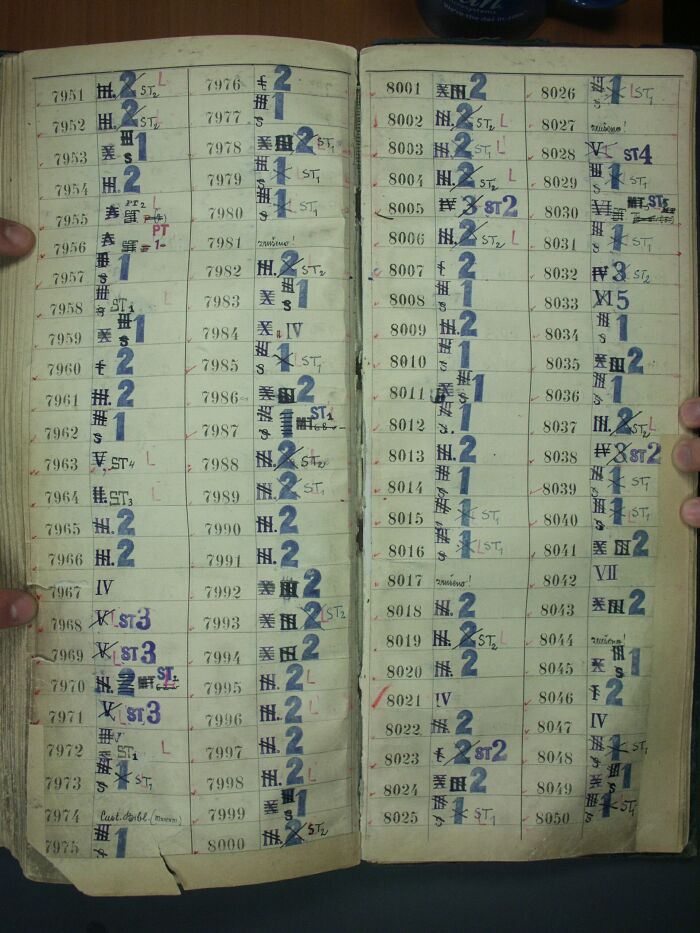 7951 III. 2 ST2 L
7952 III. 2 ST2 L
7953 X III S 1
7954 III. 2
7955 A PT2 L ST
7956 A ST PT 1-
7957 III S 1
7958 III S ST1 L
7959 X III S 1
7960 f 2
7961 III. 2
7962 III S 1
7963 V. ST4 L
7964 II. ST3 L
7965 III. 2
7966 III. 2
7967 IV
7968 V L ST3
7969 V L ST3
7970 III. 2 MT ST2
7971 V L ST3
7972 III ST1 L
7973 III S 1 ST1
7974 Cust. Bibl. (
7975 III S 1
7976 f 2
7977 III S 1
7978 X III 2 ST2
7979 III S 1 L ST1
7980 III S 1 ST1
7981 zrušeno!
7982 III. 2 ST2
7983 X III S 1
7984 X a IV
7985 III S 1 L ST1
7986 X III 2
7987 III S 1 ST1 MT
7988 III. 2 ST2
7989 III. 2 ST1
7990 III. 2
7991 III. 2
7992 X III 2
7993 X III 2 L ST2
7994 X III 2
7995 III. 2 L
7996 III. 2 L
7997 III. 2
7998 III. 2 L
7999 X III S 1
8000 III. 2 ST2
8001 X III 2
8002 III. 2 ST2 L
8003 III. 2 ST1 L
8004 III. 2 ST2 L
8005 IV 3 ST2
8006 III. 2 ST2 L
8007 f 2
8008 III S 1
8009 III. 2
8010 III S 1
8011 X III S 1
8012 III S. 1
8013 III. 2
8014 III S 1
8015 III S 1 ST1
8016 III S 1 L ST1
8017 zrušeno!
8018 III. 2
8019 III. 2 ST2 L
8020 III. 2
8021 IV
8022 III. 2
8023 f 2 ST2
8024 X III 2
8025 III S 1 L ST1
8026 III S 1 L ST1
8027 zrušeno!
8028 V L ST4
8029 III S 1 ST1
8030 VI ST MT ST5
8031 III S 1 ST1
8032 IV 3 ST2
8033 VI 5
8034 III S 1
8035 X III 2
8036 III S 1
8037 III. 2 ST2 L
8038 IV 3 ST2
8039 III S 1 ST1
8040 III S 1 L ST1
8041 X III 2
8042 VII
8043 X III 2
8044 zrušeno!
8045 X III S 1
8046 f 2
8047 IV
8048 III S 1 ST1
8049 X III S 1
8050 III S 1 ST1